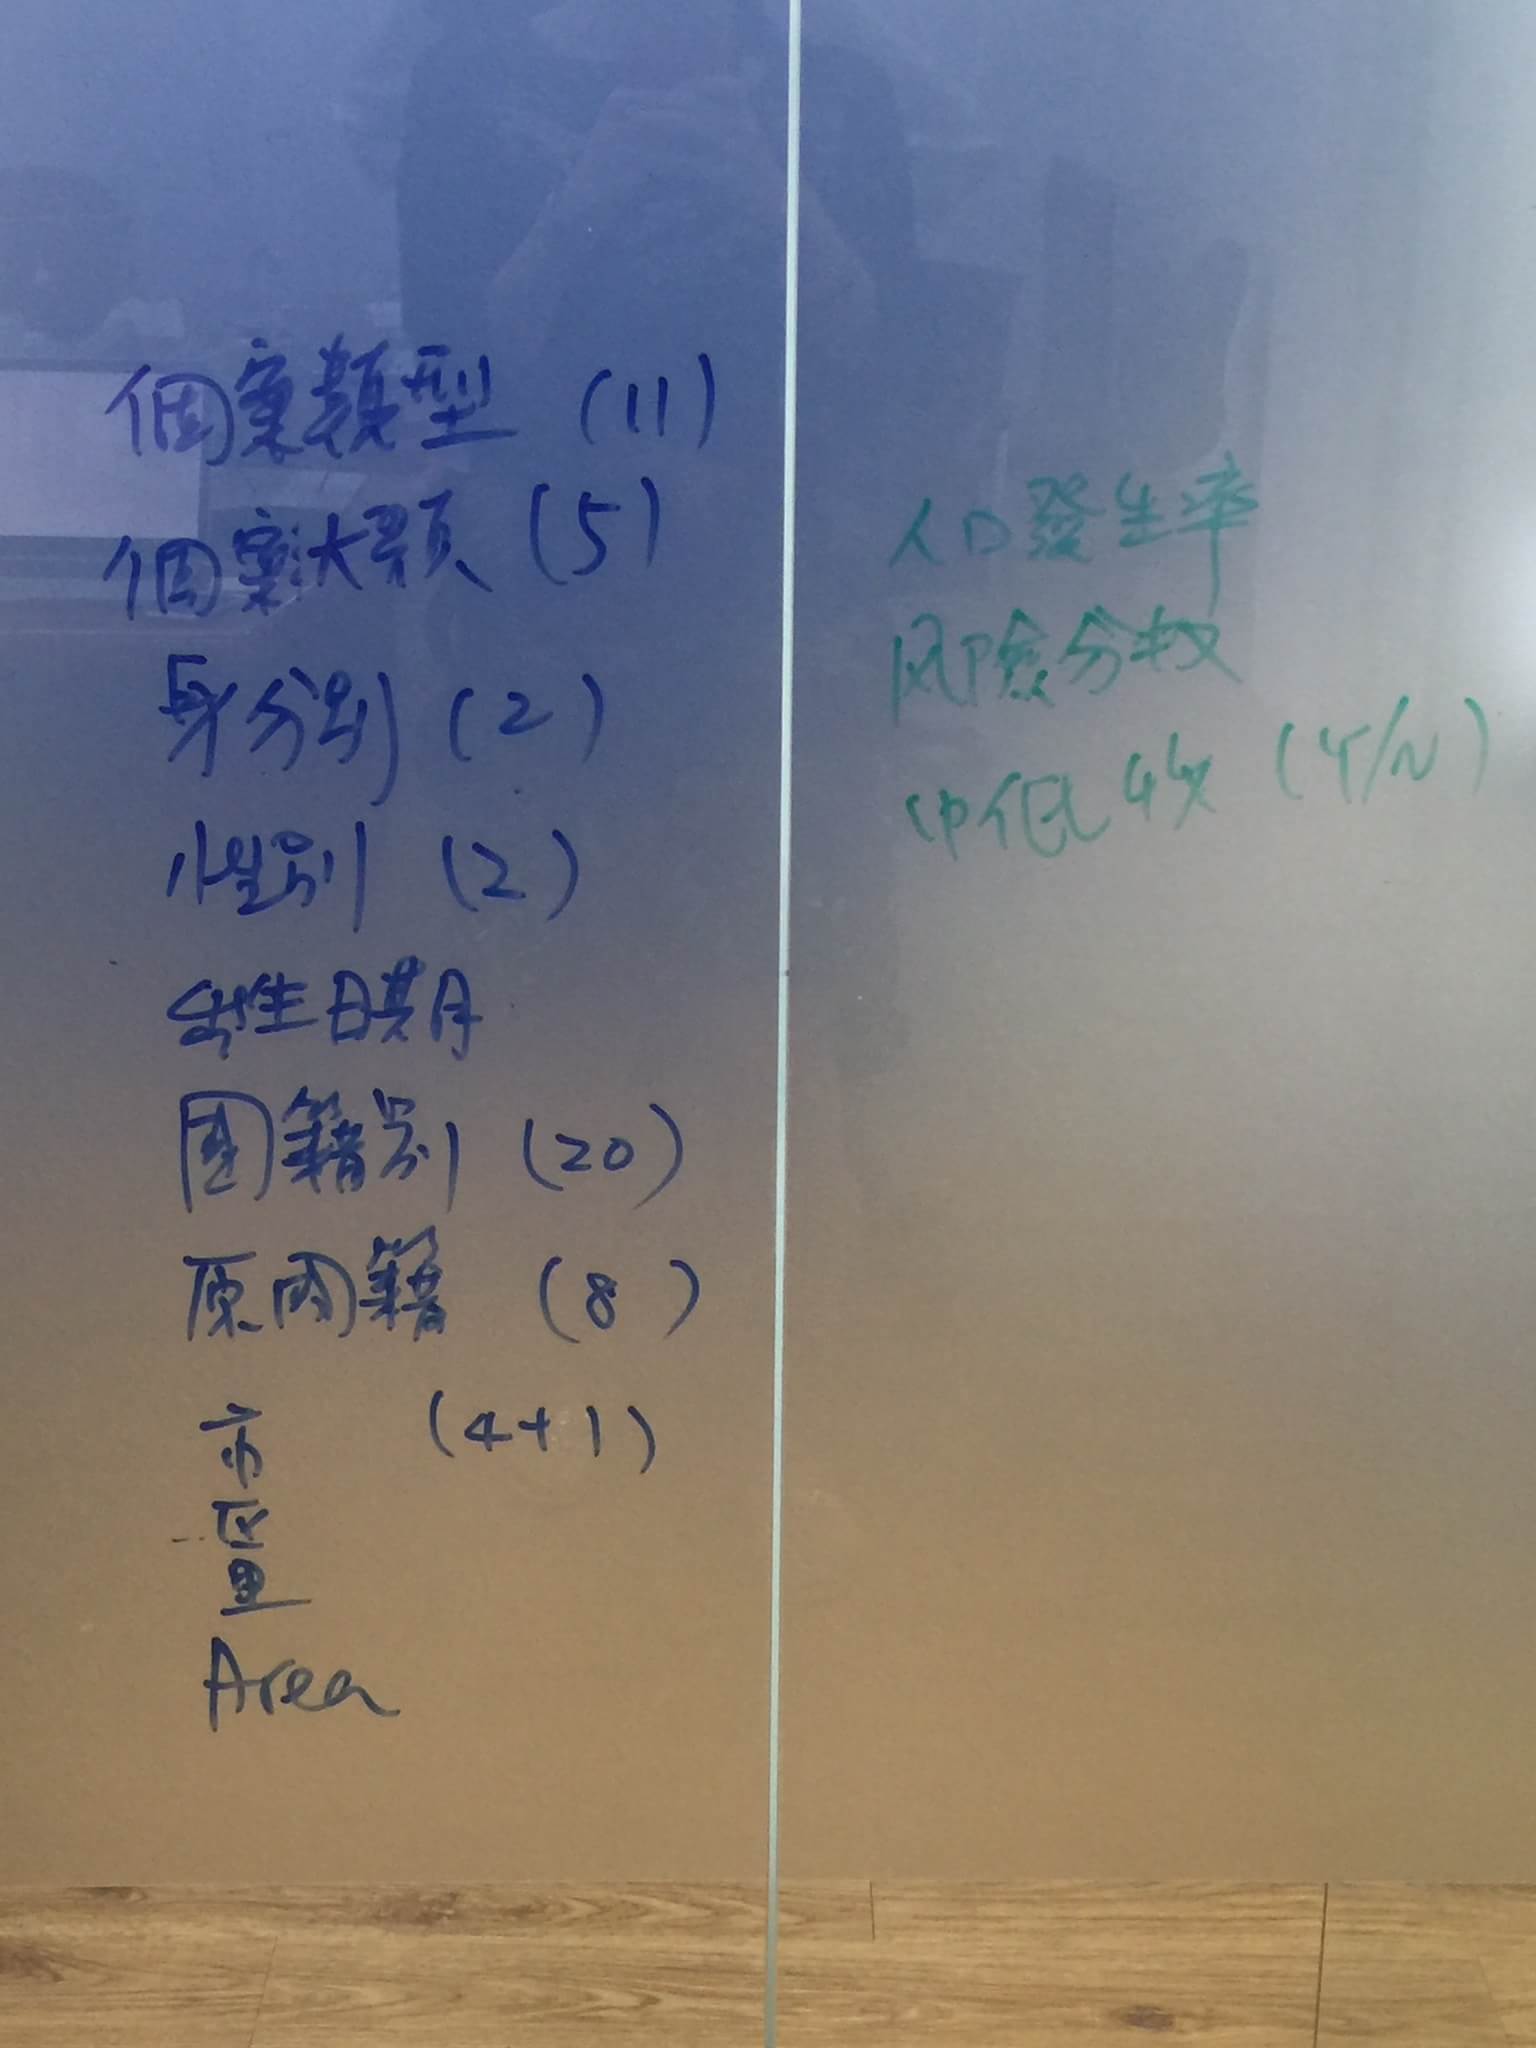 個案類型 (11)
個案大類 (5)
身分別 (2)
性別 (2)
出生日期
國籍別 (20)
原國籍 (8)
市 (4+1)
區
里
Area
人口發生率
风險分数
中低收 (Y/N)